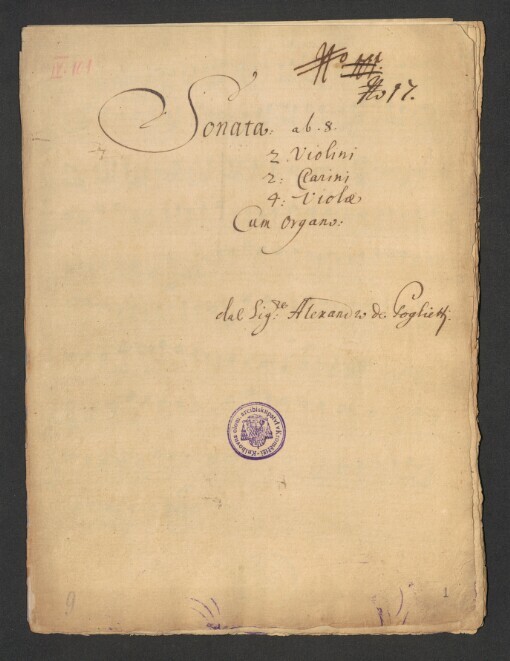 IV. 101
No
No 17.
Sonata: ab. 8.
2 Violini
2: Clarini
4: Violæ
Cum Organo:
dal Sig.re Alexandro de Poglietti.
9
1